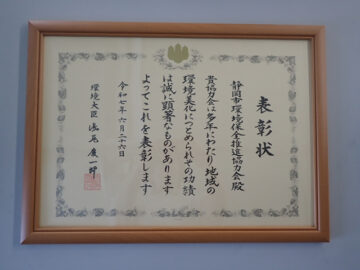 表彰状
静岡市環境保全推進協力会殿
貴協力会は多年にわたり地域の
環境美化につとめられその功績
は誠に顕著なものがあります
よってこれを表彰します
令和七年六月二十六日
環境大臣 浅尾慶一郎